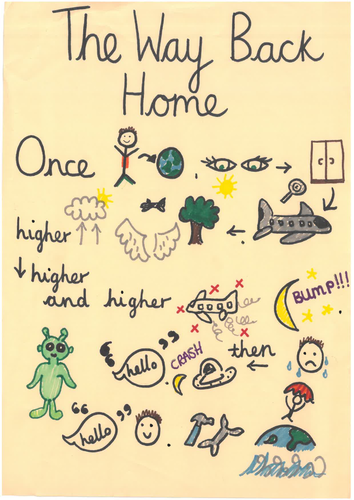 The Way Back
Home
Once
higher
higher
and higher
BUMP!!!
then
CRASH
"hello"
"hello"